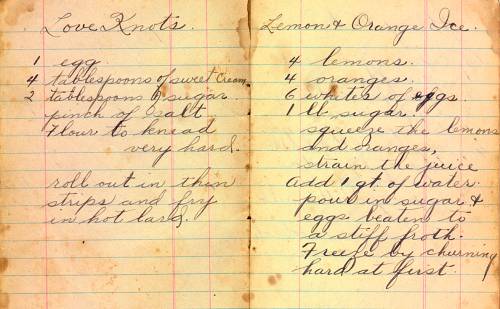 Love Knots.
1 egg
4 tablespoons of sweet Cream
2 tablespoons of sugar.
pinch of salt
Flour to knead
very hard.
roll out in thin
strips and fry
in hot lard,
Lemon & Orange Ice.
4 lemons.
4 oranges.
6 whites of eggs.
1 lb sugar.
squeeze the lemons
and oranges,
strain the juice
add 1 qt. of water.
pour in sugar &
eggs beaten to
a stiff froth.
Freeze by churning
hard at first.